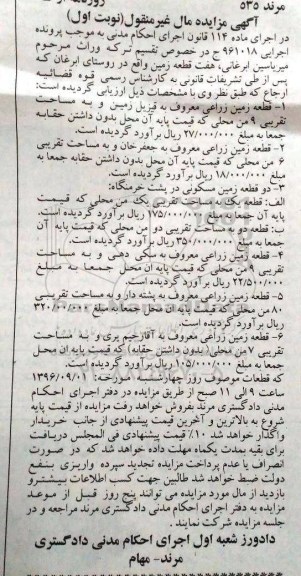 مرند ۵۳۵
آگهی مزایده مال غیرمنقول(نوبت اول)
در اجرای ماده ۱۱۴ قانون اجرای احکام مدنی به موجب پرونده
اجرایی ۹۶۱۰۱۸ ج در خصوص تقسیم ترکه وراث مرحوم
میریاسین ابرغانی، هفت قطعه زمین واقع در روستای ابرغان که
پس از طی تشریفات قانونی به کارشناس رسمی قوه قضائیه
ارجاع که طبق نظر وی با مشخصات ذیل ارزیابی گردیده است:
۱- قطعه زمین زراعی معروف به قیزیل زمین و به مساحت
تقریبی ۹ من محلی که قیمت پایه آن محل بدون داشتن حقابه
جمعا به مبلغ ۲۷/۰۰۰/۰۰۰ ریال برآورد گردیده است.
۲- قطعه زمین زراعی معروف به جعفرخان و به مساحت تقریبی
۶ من محلی که قیمت پایه آن محل بدون داشتن حقابه جمعا به
مبلغ ۱۸/۰۰۰/۰۰۰ ریال برآورد گردیده است.
۳- دو قطعه زمین مسکونی در پشت خرمنگاه:
الف: قطعه یک به مساحت تقریبی یک من محلی که قیمت
پایه آن جمعا به مبلغ ۱۷۵/۰۰۰/۰۰۰ ریال برآورد گردیده است.
ب: قطعه دو به مساحت تقریبی دو من محلی که قیمت پایه آن
جمعا به مبلغ ۳۵۰/۰۰۰/۰۰۰ ریال برآورد گردیده است.
۴- قطعه زمین زراعی معروف به سکی دهی و به مساحت
تقریبی ۹ من محلی که قیمت پایه آن محل جمعا به مبلغ
۲۲/۵۰۰/۰۰۰ ریال برآورد گردیده است.
۵- قطعه زمین زراعی معروف به پشته دار و به مساحت تقریبی
۸۰ من محلی که قیمت پایه آن محل جمعا به مبلغ ۳۲۰/۰۰۰/۰۰۰
ریال برآورد گردیده است.
۶- قطعه زمین زراعی معروف به آقازحیم پری و به مساحت
تقریبی ۷ من محلی(بدون داشتن حقابه) که قیمت پایه آن محل
جمعا به مبلغ ۱۰۵/۰۰۰/۰۰۰ ریال برآورد گردیده است.
که قطعات موصوف روز چهارشنبه مورخه: ۱۳۹۶/۰۹/۰۱
ساعت ۹ الی ۱۱ صبح از طریق مزایده در دفتر اجرای احکام
مدنی دادگستری مرند بفروش خواهد رفت مزایده از قیمت پایه
شروع به بالاترین و آخرین قیمت پیشنهادی از جانب خریدار
واگذار خواهد شد ۱۰٪ قیمت پیشنهادی فی المجلس دریافت
برای بقیه بمدت یکماه مهلت داده خواهد شد که در صورت
انصراف یا عدم پرداخت مزایده تجدید سپرده واریزی بنفع
دولت ضبط خواهد شد طالبین جهت کسب اطلاعات بیشتر و
بازدید از مال مورد مزایده می توانند پنج روز قبل از موعد
مزایده به دفتر اجرای احکام مدنی دادگستری مرند مراجعه و در
جلسه مزایده شرکت نمایند.
دادورز شعبه اول اجرای احکام مدنی دادگستری
مرند- مهام